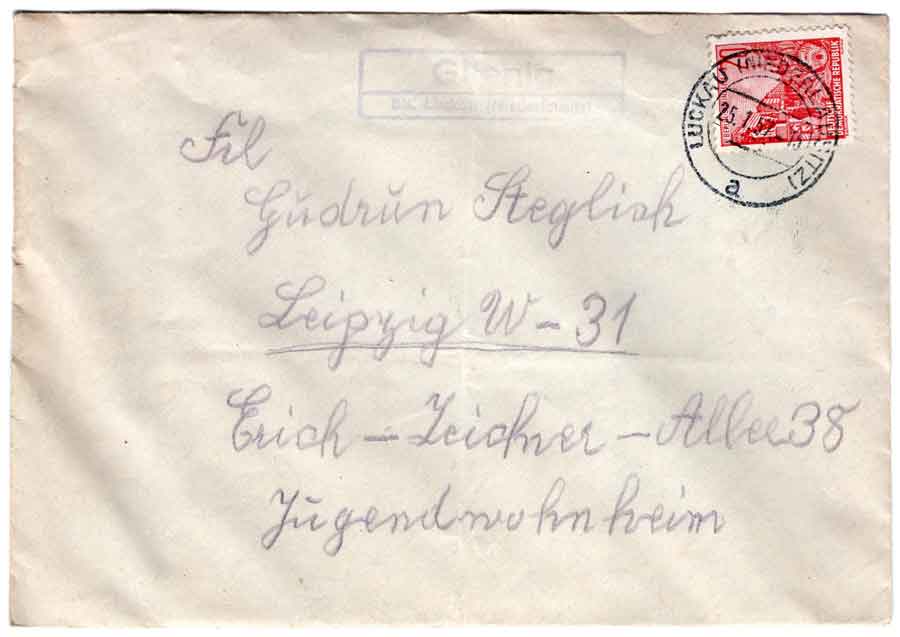 LUCKAU (NIEDERLAUSITZ)
25.1.57
a
DEUTSCHE
DEMOKRATISCHE REPUBLIK
Frl
Gudrun Steglich
Leipzig W-31
Erich-Zeichner-Allee 38
Jugendwohnheim